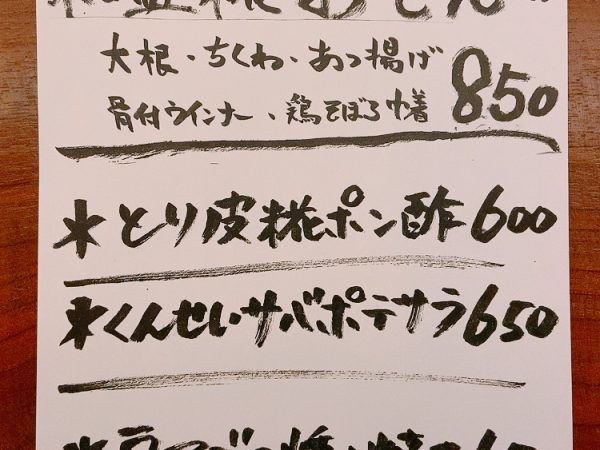 塩糀おでん
大根・ちくわ・あつ揚げ
骨付ウインナー、鶏そぼろ巾着 850
*とり皮糀ポン酢 600
*くんせいサバポテサラ 650